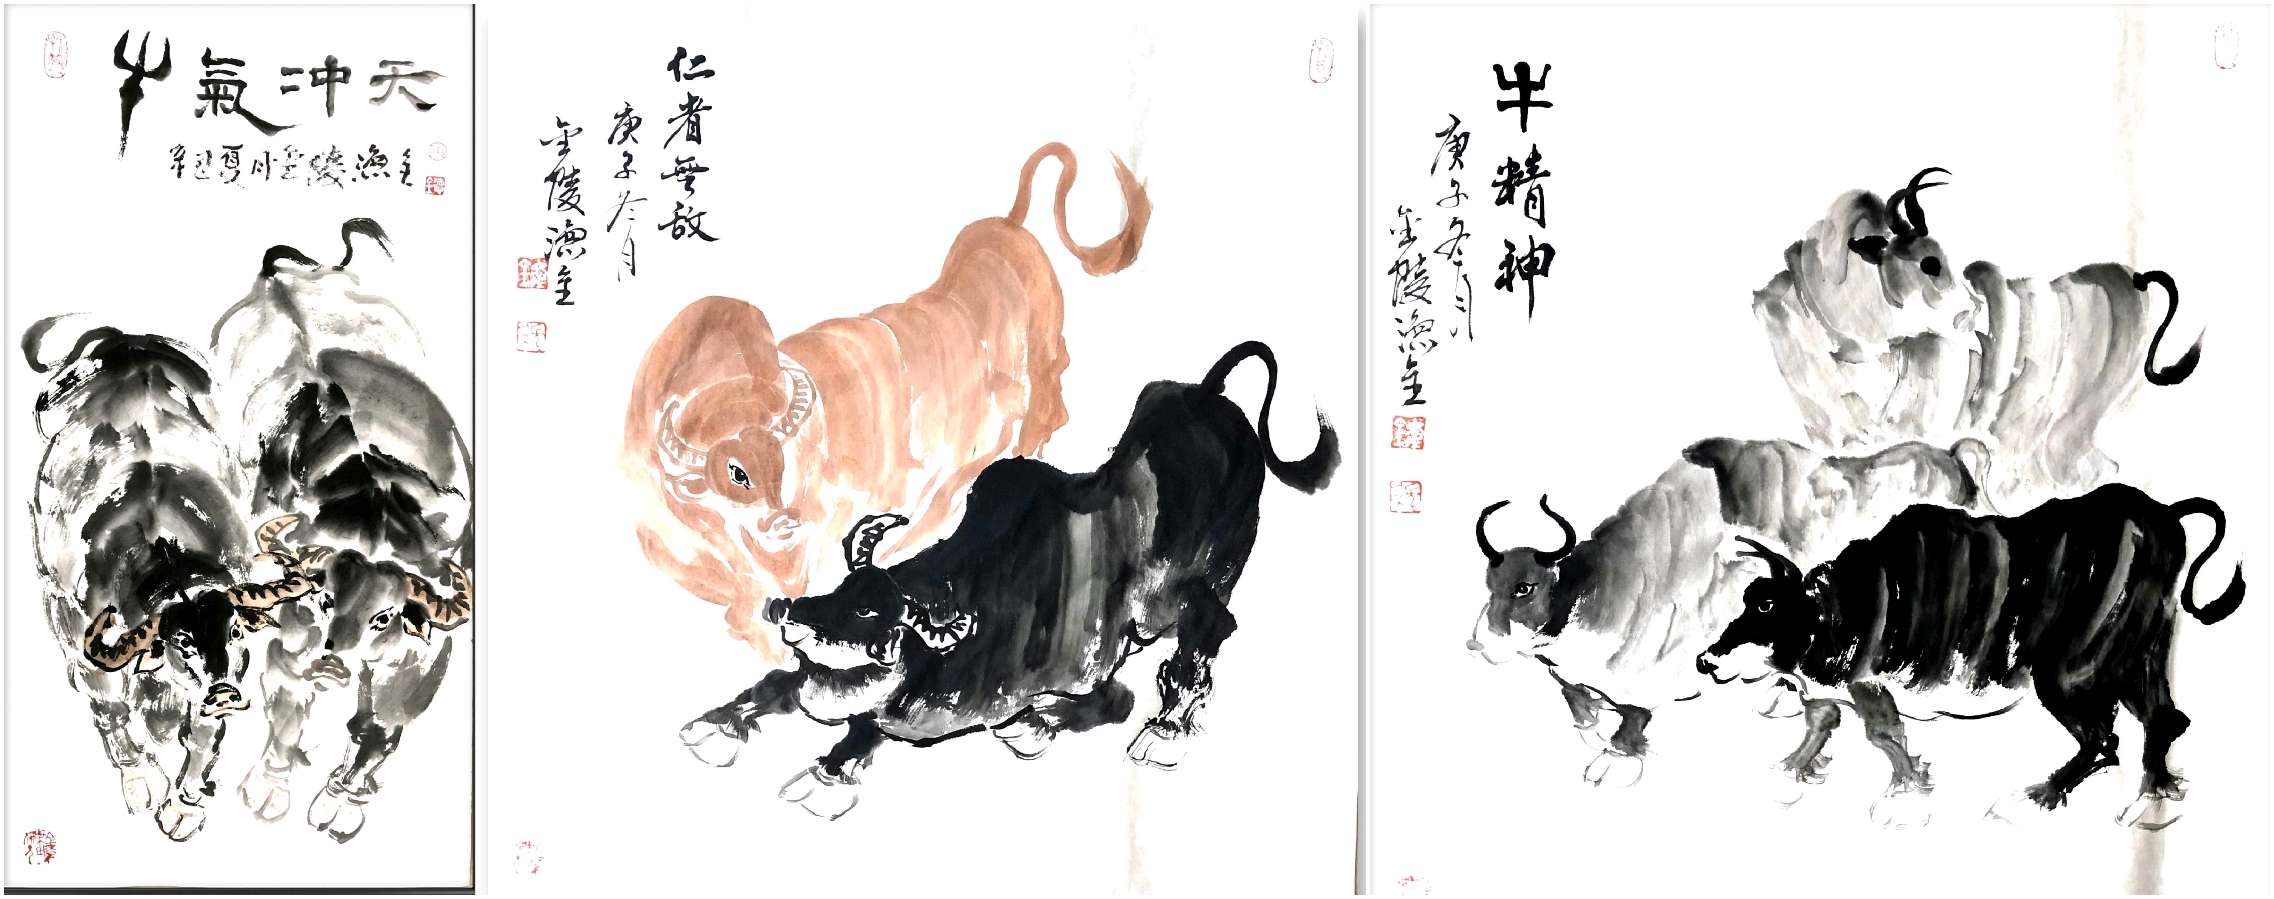 牛氣冲天
辛丑夏月金陵漁主
仁者無敌
庚子冬月
金陵漁主
牛精神
庚子冬月
金陵漁主